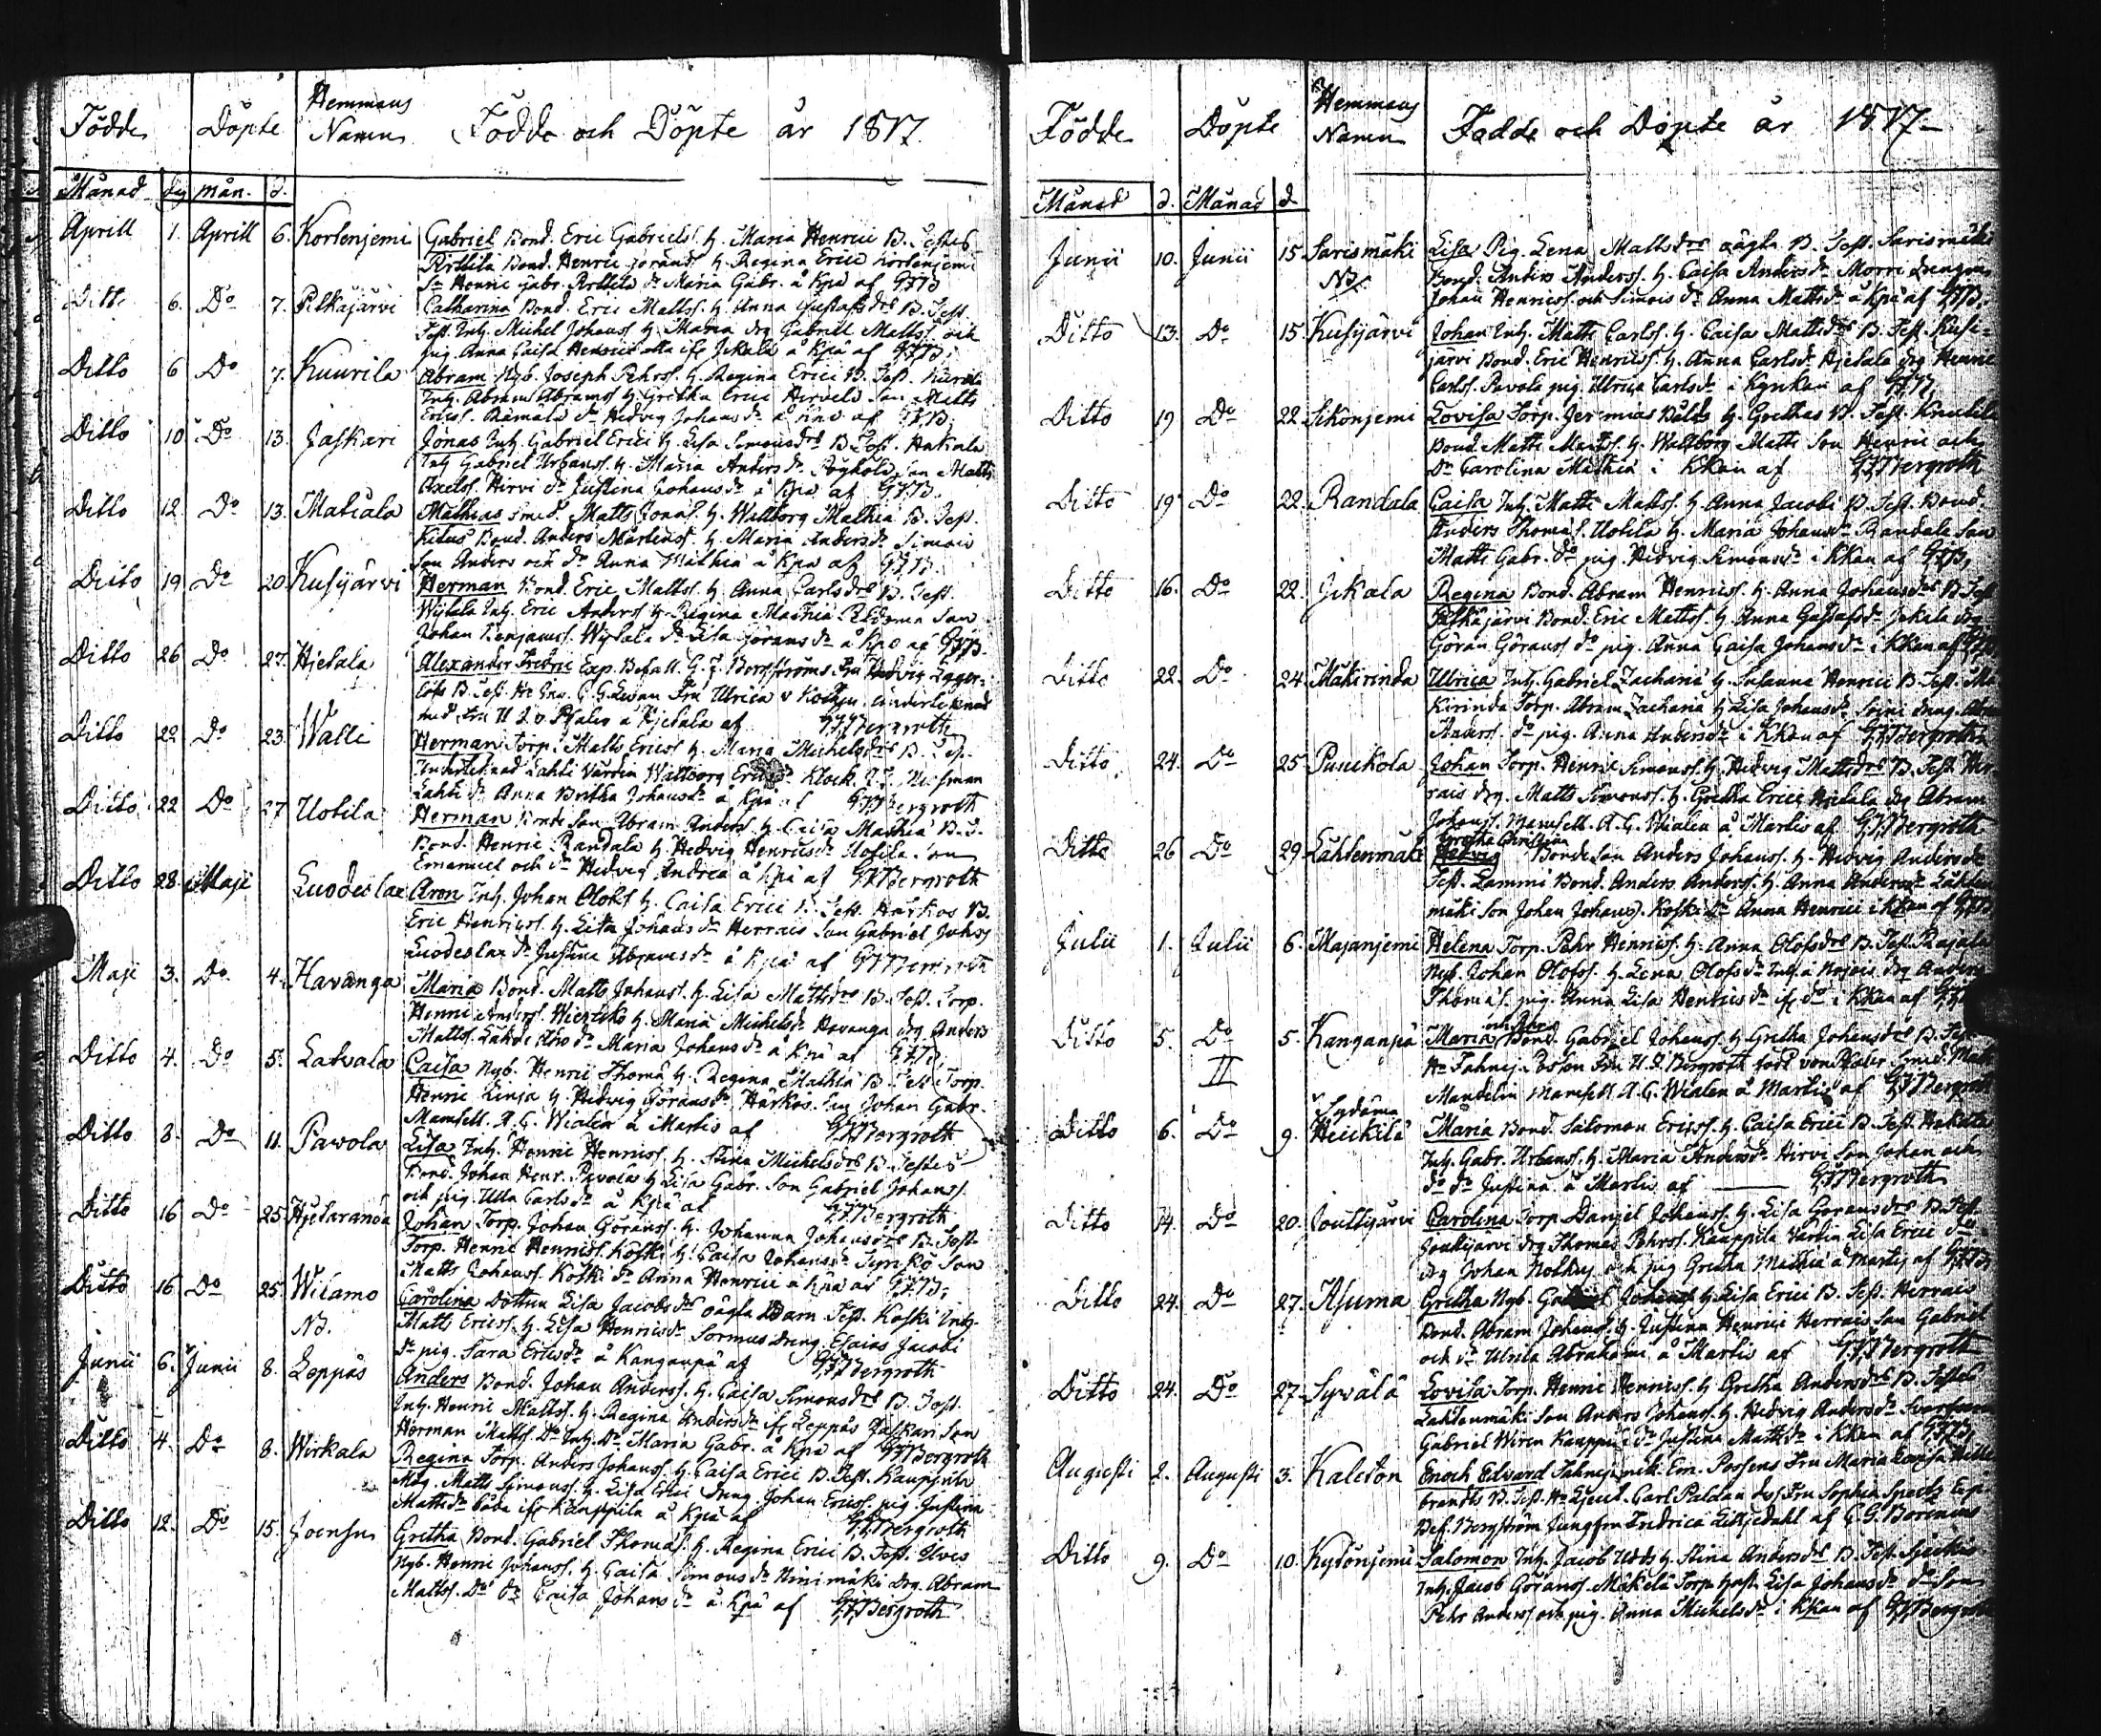 Födde Döpte Hemmans Namn Födde och Döpte år 1817.
Månad dag mån. d.
Aprill 1. Aprill 6. Kortenjemi Gabriel Bond. Eric Gabriels. H. Maria Henrici B. Testes
Pirttila Bond. Henric Jörans H. Regina Erici Kortenjemi
Sn Henric Gabr. Pirttila Dr Maria Gabr. å Kpa af GFB
Ditto 6. Do 7. Pitkäjärvi Catharina Bond. Eric Matts. H. Anna Gustafsdr B. Test.
Test. Inh. Michel Johans. H. Maria drg Gabriell Matts. och
pig. Anna Caisa Henrici alla ifr Jikala å Kpa af GFB.
Ditto 6 Do 7. Kuurila Abram Nyb. Joseph Pehrs. H. Regina Erici B. Test. Kurila
Inh. Abram Abrams. H. Gretha Erici Hirvelä Son Matts
Erics. Rämälä Dr Hedvig Johans dr å Kpa af GFB.
Ditto 10 Do 13. Jaskari Jonas Inh. Gabriel Erici H. Lisa Simonsdr B. Test. Hakala
Inh. Gabriel Urbans. H. Maria Anders dr Son Matts
Axels. Hirvi Dr Justina Johans dr å Kpa af GFB.
Ditto 12. Do 13. Matiala Mathias smed. Matts Jonas. H. Wallborg Mathiæ B. Test.
Bond. Anders Mårtens. H. Maria Andersdr Simois
Son Anders och dr Anna Mathiæ å Kpa af GFB.
Ditto 19 Do 20 Kusijärvi Herman Bond. Eric Matts. H. Anna Carlsdr B. Test.
Inh. Eric Anders. H. Regina Mathiæ Son
Johan Benjams. Dr Lisa Jörans dr å Kpa af GFB.
Ditto 26 Do 27. Hjetala Alexander Fredric Exp. Befall. G. F. Bergströms Fru Hedvig Lager-
löfs B. Test. Hr G. Fru Ulrica v
med Fru U å Hjetala af GFBergroth
Ditto 22 Do 23. Walli Herman Torp. Matts Erics. H. Maria Michelsdr B. Tes.
Lahti Värdin Wallborg Klock.
Lahti Dr Anna Britha Johansdr å Kpa af GFBergroth
Ditto 22 Do 27 Uotila Herman Bonde Son Abram Anders. H. Caisa Mathiæ B. T.
Bond. Henric Randala H. Hedvig Henricsdr Uotila Son
Emanuel och dr Hedvig Andreæ å Kpa af GFBergroth
Ditto 28. Maji Luodeslax Aron Inh. Johan Olofs. H. Caisa Erici B. Test. Härkos B.
Eric Henrics. H. Lisa Johans dr Herrais Son Gabriel Johs.
Luodeslax Dr Justina Abrams dr å Kpa af GFBergroth
Maji 3. Do 4. Havanga Maria Bond. Matts Johans. H. Lisa Mattsdr B. Test. Torp.
Henric Anders. H. Maria Michelsdr Havanga drg Anders
Matts. Dr Maria Johans dr å Kpa af GFB
Ditto 4. Do 5. Latvala Caisa Nyb. Henric Thomæ H. Regina Mathiæ B. Test. Torp.
Henric Linja H. Hedvig Görans dr Härkos. Inh Johan Gabr.
Mamsell. A. C. Wialen å Martis af GFBergroth
Ditto 8. Do 11. Pavola Lisa Inh. Henric Henrics. H. Stina Michelsdr B. Testes
Bond. Johan Henr. Pavola H. Lisa Gabr. Son Gabriel Johans.
och pig. Ulla Carls dr å Kpa af GFBergroth
Ditto 16 Do 25 Hjetaranda Johan Torp. Johan Görans. H. Johanna Johansdr B. Test.
Torp. Henric Henrics. Koski H. Caisa Johans dr Son
Matts Johans. Koski Dr Anna Henrici å Kpa af GFB.
Ditto 16 Do 25. Wilamo Carolina Dottren Lisa Jacobsdr oägta Barn Test. Koski Inh.
NB. Matts Erics. H. Lisa Henricsdr Sormus dreng. Esaias Jacobi
Dr pig. Sara Ericsdr å Kanganpä af GFBergroth
Junii 6. Junii 8. Leppäs Anders Bond. Johan Anders. H. Caisa Simonsdr B. Test.
Inh. Henric Matts. H. Regina Anders dr ifr Leppäs Jaskari Son
Herman Matts. Do Inh. Dr Maria Gabr. å Kpa af GFBergroth
Ditto 4. Do 8. Wirkala Regina Torp. Anders Johans. H. Caisa Erici B. Test. Kauppila
Matts Simons. H. Lisa Erici dreng. Johan Erics. pig. Justina
Matts dr båda ifr Kauppila å Kpa af GFBergroth
Ditto 12. Do 15. Joensu Gretha Bond. Gabriel Thomas. H. Regina Erici B. Test. Ilves
Nyb. Henric Johans. H. Caisa Simons dr Ninimäki Drg. Abram
Matts. Do Dr Caisa Johans dr å Kpa af GFBergroth
Födde Döpte Hemmans Namn Födde och Döpte år 1817
Månad d. Månad d
Junii 10. Junii 15 Sarismäki Lisa Pig. Lena Mattsdrs oägta B. Test. Sarismäki
NB. Bond. Anders Anders. H. Caisa Anders dr Morri drengen
Johan Henrics. och Simois dr Anna Mattsdr å Kpa af GFB.
Ditto 13. Do 15. Kusijärvi Johan Inh. Matts Carls. H. Caisa Mattsdr B. Test. Kusi-
järvi Bond. Eric Henrics. H. Anna Carlsdr Hjetala drg Henric
Carls. Pavola pig. Ulrica Carlsdr i Kyrkan af GFB.
Ditto 19 Do 22 Sikonjemi Lovisa Torp. Jeremias H. Grethas B. Test. Knuutila
Bond Matts Matts. H. Wallborg Matts Son Henric och
Dr Carolina Mathiæ i Kkan af GFBergroth
Ditto 19 Do 22. Randala Caisa Inh. Matts Matts. H. Anna Jacobi B. Test. Bond.
Anders Thomas. Uotila H. Maria Johansdr Randala Son
Matts Gabr. do pig. Hedvig Simons dr i Kkan af GFB,
Ditto 16. Do 22 Jikala Regina Bond. Abram Henrics. H. Anna Johansdr B Test
Pitkäjärvi Bond. Eric Matts. H. Anna Gustafsdr Jikala drg
Göran Görans do pig. Anna Caisa Johans dr i Kkan af GFB
Ditto 22. Do 24. Mäkirinda Ulrica Inh. Gabriel Zachariæ H. Susanna Henrici B. Test. Mä
kirinda Torp. Abram Zachariæ H Lisa Johans dr Soini dreng. Abram
Anders. do pig. Anna Anders dr i Kkan af GFBergroth
Ditto 24. Do 25 Punckola Johan Torp. Henric Simons. H. Hedvig Mattsdr B. Test. Her-
rais drg. Matts Simons. H. Gretha Erici Hjetala drg Abram
Johans. Mamsell. A. C. Wialen å Martis af GFBergroth
Ditto 26 Do 29 Lahtenmäki Gretha Christina Bonde Son Anders Johans. H. Hedvig Anders dr
Test. Lammi Bond. Anders Anders. H. Anna Anders dr Lahten
mäki Son Johan Johans. Koski Dr Anna Henrici i Kkan af GFB
Julii 1. Julii 6. Majanjemi Helena Torp. Pehr Henrics. H. Anna Olofsdr B. Test. Rajala
Nyb. Johan Olofs. H. Lena Olofs dr Inh. drg Anders
Thomas. pig. Anna Lisa Henrics dr ifr do i Kkan af GFB
Ditto 5. Do 5. Kanganpä Maria Bond. Gabriel Johans. H. Gretha Johansdr B. Test.
II Hr Fahnej. Fru U. Bergroth född von Smed. Matts
Mandelin Mamsell. A. C. Wialen å Martis af GFBergroth
Ditto 6. Do 9. Sydänm Heickilä Maria Bond. Salomon Erics. H. Caisa Erici B. Test. Hakala
Inh. Gabr. Urbans. H. Maria Andersdr Hirvi Son Johan och
do dr Justina å Martis af GFBergroth
Ditto 14. Do 20. Jouttijärvi Carolina Torp Daniel Johans. H. Lisa Goransdr B. Test.
Joutijärvi drg Thomas Pehrs. Kauppila Värdin Lisa Erici do
drg Johan och pig Gretha Mathiæ å Martis af GFB,
Ditto 24. Do 27. Asuma Gretha Nyb. Johans H. Lisa Erici B. Test. Herrais
Bond. Abram Johans. H. Justina Henrici Herrais Son Gabriel
och dr Ulrila Abrahami å Martis af GFBergroth
Ditto 24. Do 27. Syvälä Lovisa Torp. Henric Henrics. H Gretha Andersdr B. Testes
Lahtenmäki Son Anders Johans. H. Hedvig Anders dr
Gabriel Wiren Kauppi dr Justina Matts dr i Kkan af GFB,
Augusti 2. Augusti 3. Kaleton Enoch Edvard Fahnej. Em. Possens Fru Maria Lovisa Hilde-
brandts B. Test. Hr Carl Paldan des Fru Sophia Exp.
Bef. Bergström Jungfru Fredrica af G. G. Borenius
Ditto 9. Do 10. Kydönjemi Salomon Inh. Jacob H. Stina Andersdr B. Test.
Inh. Jacob Görans. Mäkelä Torp. Lisa Johansdr do Son
Pehr Anders. och pig. Anna Michels dr i Kkan af GFBergroth